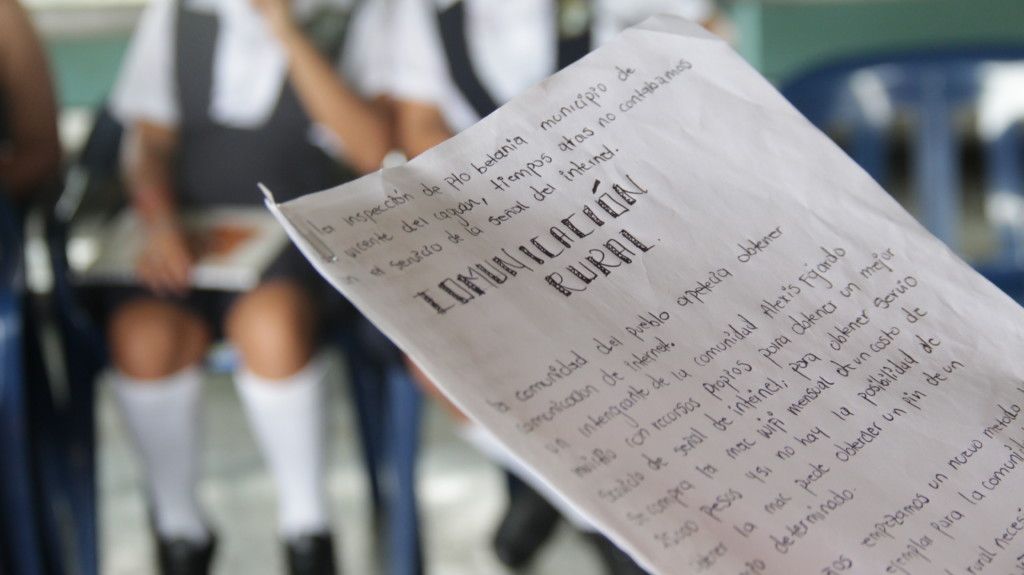 la inspección de Pto betania municipio de
vicente del caguan, tiempos atras no contabamos
n el servicio de la señal del internet.
COMUNICACIÓN
RURAL.
la comunidad del pueblo apetecia obtener
comunicacion de internet.
un intengrante de la comunidad Alexis Fijardo
con recursos propios para obtener un mejor
servicio de señal de internet, para obtener Servio
Se compra la mac wifi mensual de un costo de
25.000 pesos y si no hay la posibilidad de
tener la mac puede obterder un pin de un
determinado
empezamos un nuevo metodo
ejemplar para la comuni
rural neces